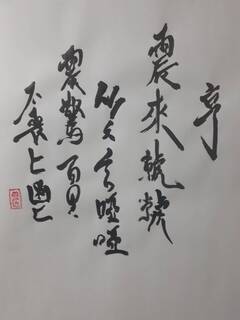 亨
震來虩虩
笑言啞啞
震驚百里
不喪匕鬯